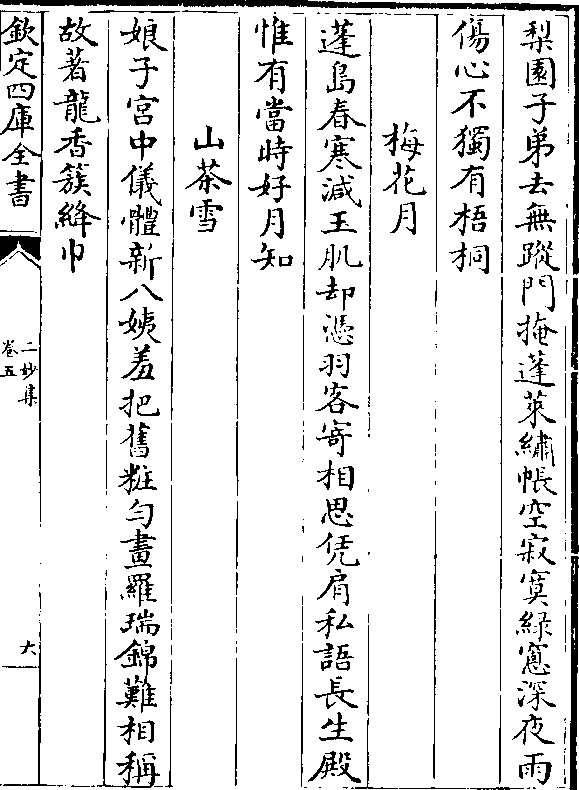 梨園子弟去無蹤門掩蓬萊繡帳空寂寞緑窻深夜雨
傷心不獨有梧桐
梅花月
蓬島春寒減玉肌却憑羽客寄相思凭肩私語長生殿
惟有當時好月知
山茶雪
娘子宮中儀體新八姨羞把舊粧勻畫羅瑞錦難相稱
故著龍香簇絳巾
欽定四庫全書
二妙集
卷五
六